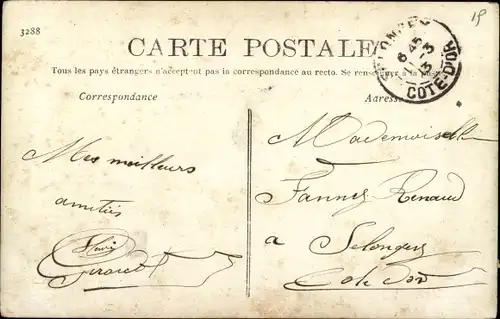 3288
19
CARTE POSTALE
Tous les pays étrangers n'acceptent pas la correspondance au recto. Se renseigner à la poste
Correspondance
Adresse
SELONGEY
6 45
3
13
COTE-D'OR
Mes meilleurs
amitiés
Girardet
Mademoiselle
Fanny Renaud
a
Selongey
Cote d'or